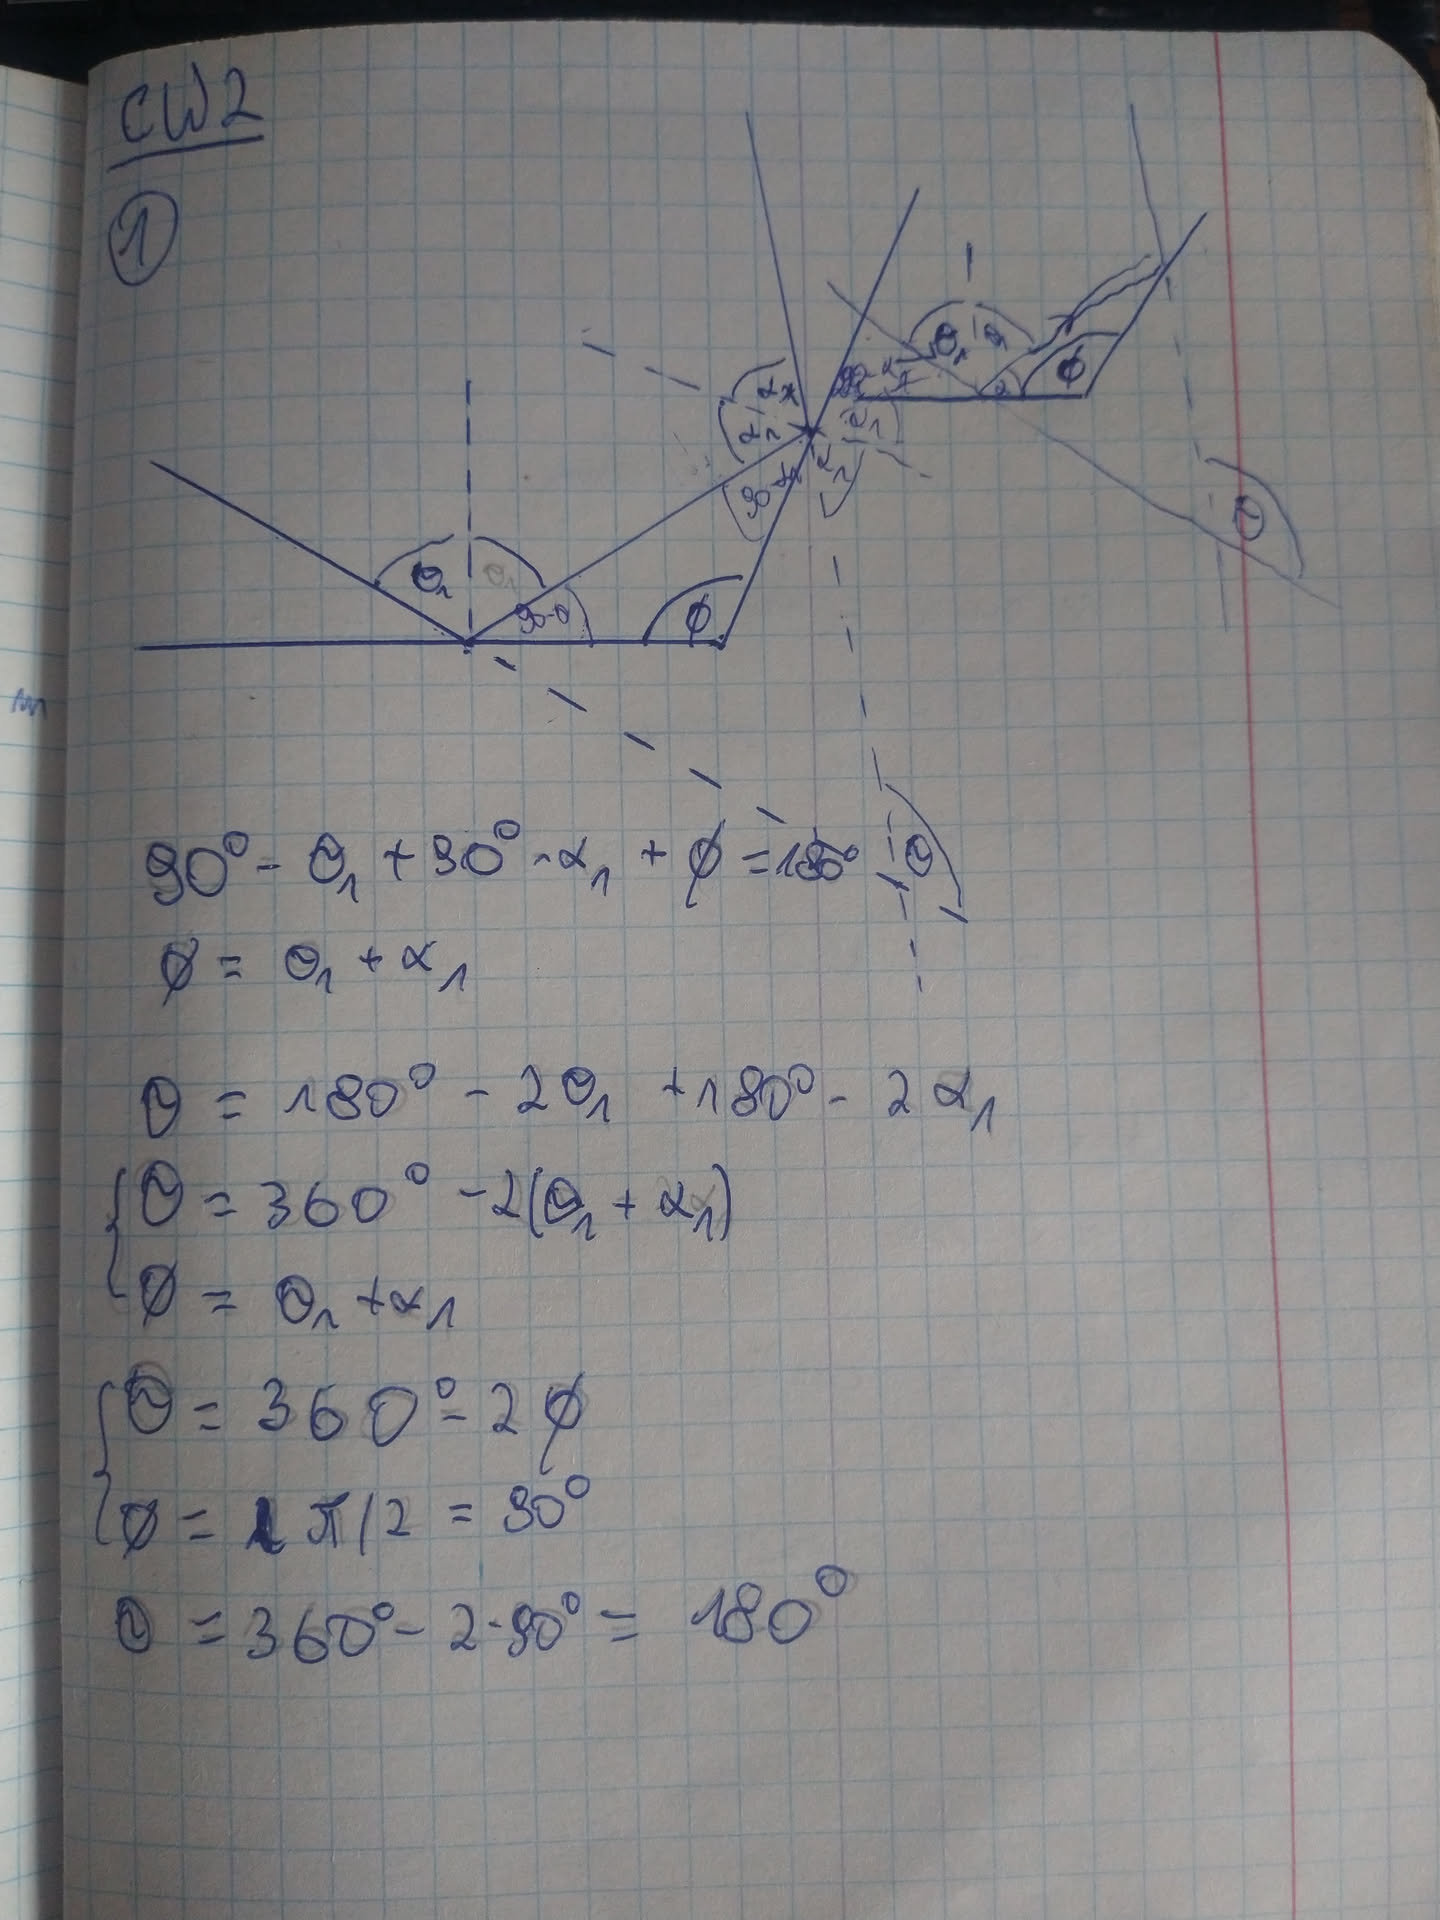 CW2
1
θ₁ θ₁ 90-θ φ
α₁ α₁ 90-α₁
θ₁ φ
θ
90° - θ₁ + 90° - α₁ + φ = 180°
θ
φ = θ₁ + α₁
θ = 180° - 2θ₁ + 180° - 2α₁
θ = 360° - 2(θ₁ + α₁)
φ = θ₁ + α₁
θ = 360° - 2φ
φ = π/2 = 90°
θ = 360° - 2·90° = 180°